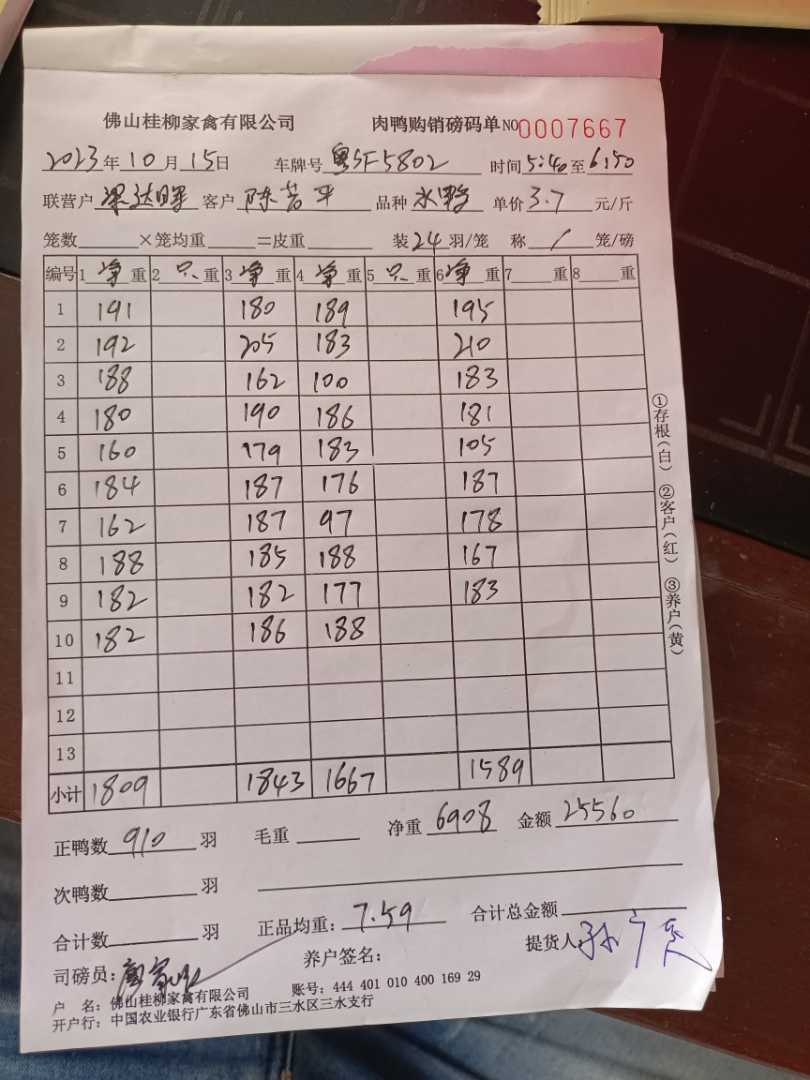 佛山桂柳家禽有限公司 肉鸭购销磅码单 NO 0007667
2023年10月15日 车牌号 粤SF5802 时间 5:40至6:50
联营户 梁达晖 客户 陈苦平 品种 水鸭 单价 3.7 元/斤
笼数 ×笼均重 =皮重 装24羽/笼 称 1 笼/磅
编号 1 净重 2 只重 3 净重 4 净重 5 只重 6 净重 7 重 8 重
1 191 180 189 195
2 192 205 183 210
3 188 162 100 183
4 180 190 186 181
5 160 179 183 105
6 184 187 176 187
7 162 187 97 178
8 188 185 188 167
9 182 182 177 183
10 182 186 188
11
12
13
小计 1809 1843 1667 1589
①存根(白) ②客户(红) ③养户(黄)
正鸭数 910 羽 毛重 净重 6908 金额 25560
次鸭数 羽
合计数 羽 正品均重: 7.59 合计总金额
司磅员: 养户签名: 提货人
户 名: 佛山桂柳家禽有限公司 账号: 444 401 010 400 169 29
开户行: 中国农业银行广东省佛山市三水区三水支行